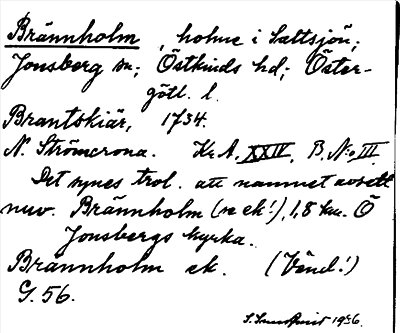 Brännholm, holme i Saltsjön;
Jonsberg sn; Östkinds hd; Öster-
götl. l.
Brantskiär, 1734.
N. Strömcrona. Kr. A. XXIV, B. No. III
Det synes trol. att namnet avsett
nuv. Brännholm (se ek!), 1,8 km. Ö
Jonsbergs kyrka.
Brännholm ek. (Vänd!)
G. 56.
S. Sundqvist 1956.